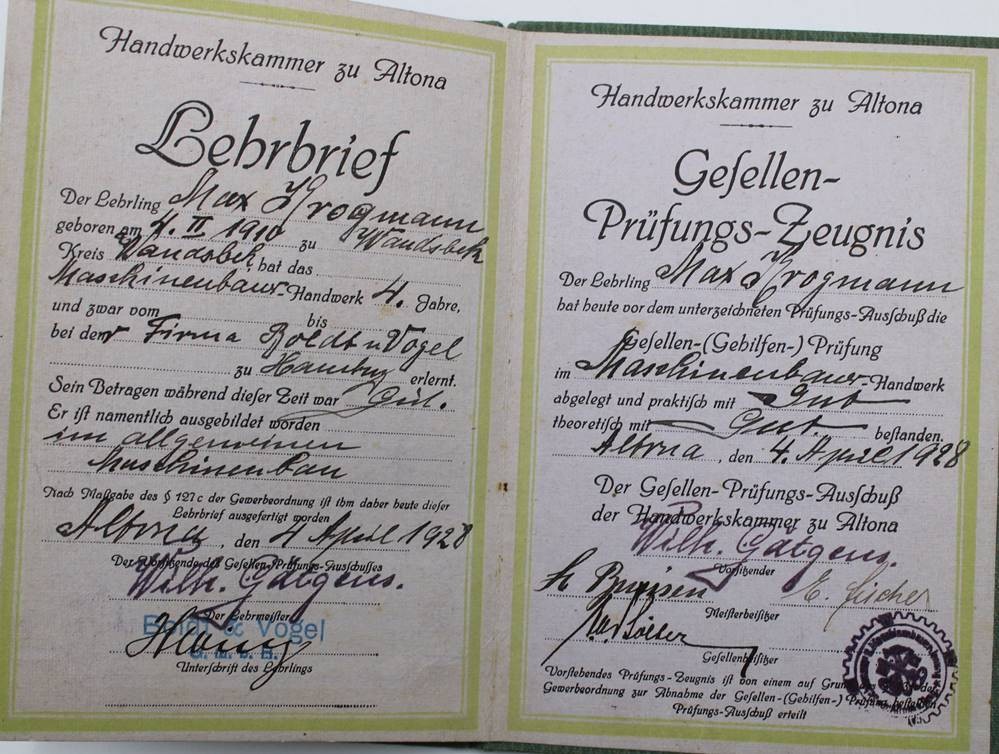 Handwerkskammer zu Altona
Lehrbrief
Der Lehrling Max Krogmann
geboren am 4. II 1910 zu Wandsbek
Kreis Wandsbek hat das
Maschinenbauer-Handwerk 4. Jahre,
und zwar vom bis
bei der Firma Boldt u Vogel
zu Hamburg erlernt.
Sein Betragen während dieſer Zeit war Gut.
Er iſt namentlich ausgebildet worden
im allgemeinen
Maschinenbau
Nach Maßgabe des § 127c der Gewerbeordnung iſt ihm daher heute dieſer
Lehrbrief ausgefertigt worden
Altona, den 4 April 1928
Der Vorſitzende des Geſellen-Prüfungs-Ausſchuſſes
Wilh. Gätgens.
Der Lehrmeiſter
Boldt & Vogel
G. m. b. H.
Unterſchrift des Lehrlings
Handwerkskammer zu Altona
Geſellen-
Prüfungs-Zeugnis
Der Lehrling Max Krogmann
hat heute vor dem unterzeichneten Prüfungs-Ausſchuß die
Geſellen-(Gebilfen-) Prüfung
im Maschinenbauer-Handwerk
abgelegt und praktiſch mit Gut
theoretiſch mit Gut beſtanden.
Altona, den 4. April 1928
Der Geſellen-Prüfungs-Ausſchuß
der Handwerkskammer zu Altona
Wilh. Gätgens.
Vorſitzender
Meiſterbeiſitzer
Geſellenbeiſitzer
Vorſtehendes Prüfungs-Zeugnis iſt von einem auf Grund der
Gewerbeordnung zur Abnahme der Geſellen-(Gehilfen-) Prüfung beſtellten
Prüfungs-Ausſchuß erteilt